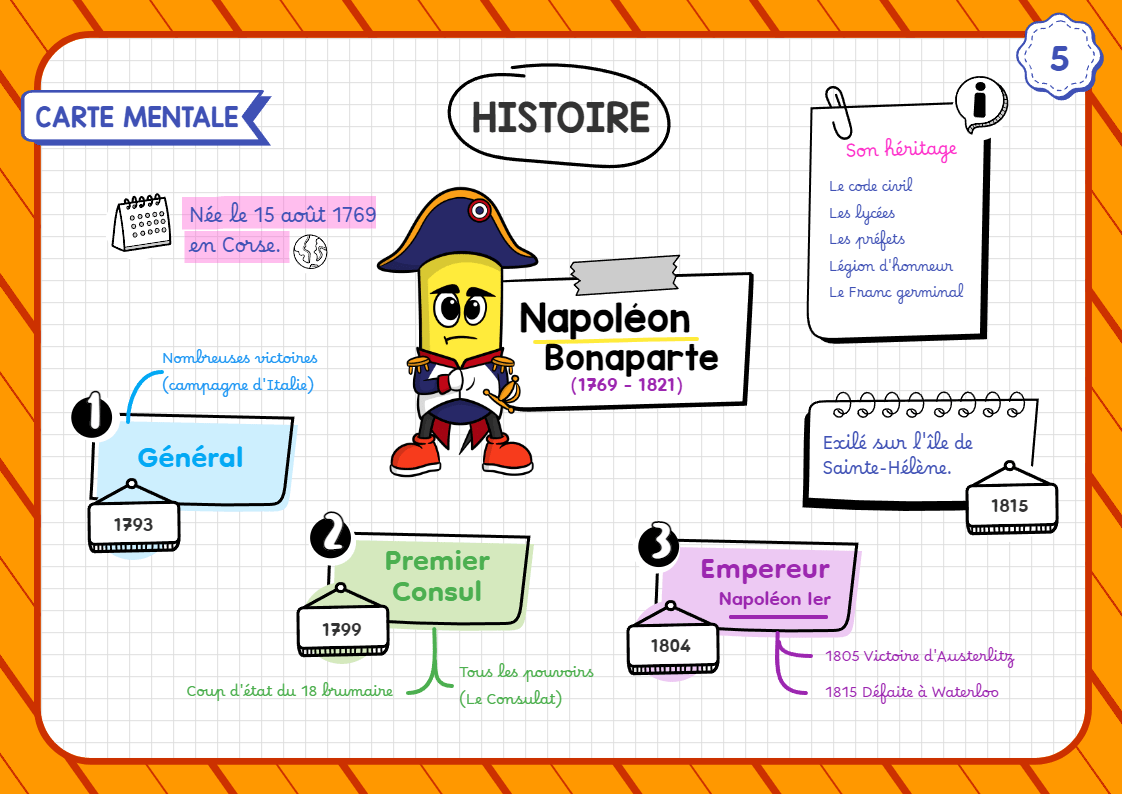 5
CARTE MENTALE
HISTOIRE
Son héritage
Le code civil
Les lycées
Les préfets
Légion d'honneur
Le Franc germinal
Née le 15 août 1769
en Corse.
Napoléon
Bonaparte
(1769 - 1821)
Nombreuses victoires
(campagne d'Italie)
1
Général
1793
Exilé sur l'île de
Sainte-Hélène.
1815
2
Premier
Consul
1799
Coup d'état du 18 brumaire
Tous les pouvoirs
(Le Consulat)
3
Empereur
Napoléon Ier
1804
1805 Victoire d'Austerlitz
1815 Défaite à Waterloo